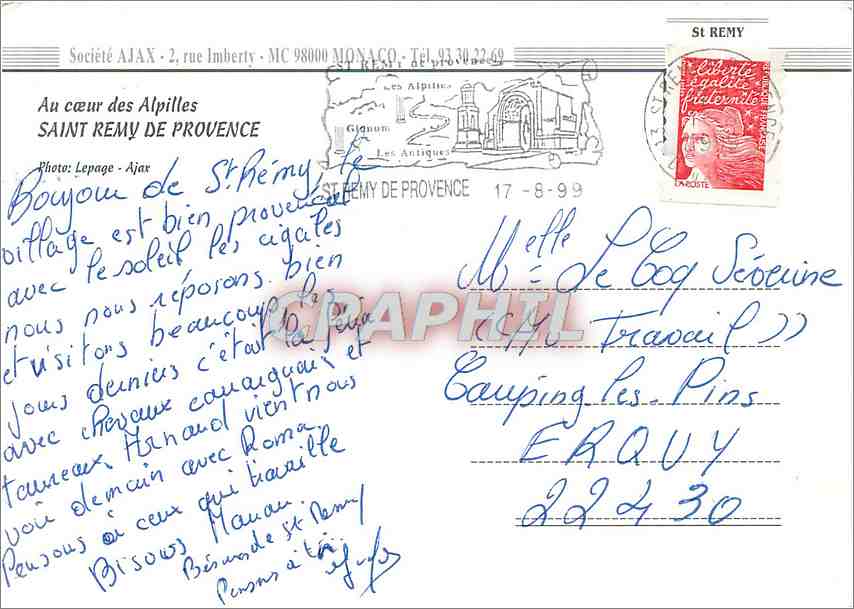 St REMY
Société AJAX - 2, rue Imberty - MC 98000 MONACO - Tél. 93.30.22.69
ST REMY de provence
Les Alpilles
Glanum
Les Antiques
ST REMY DE PROVENCE 17 - 8 - 99
liberté
égalité
fraternité
RÉPUBLIQUE FRANÇAISE
LA POSTE
Au cœur des Alpilles
SAINT REMY DE PROVENCE
Photo: Lepage - Ajax
Bonjour de St Rémy, le
village est bien provençal
avec le soleil les cigales
nous nous reposons bien
et visitons beaucoup les
jours derniers c'était la féria
avec chevaux camarguais et
taureaux, Arnaud vient nous
voir demain avec Roma.
Pensons à ceux qui travaille
Bisous Maman.
Bisous de St Remy
Pensons à toi..
Melle Le Coq Séverine
"Mo Travail"
Camping les Pins
ERQUY
22430
CPARPHIL